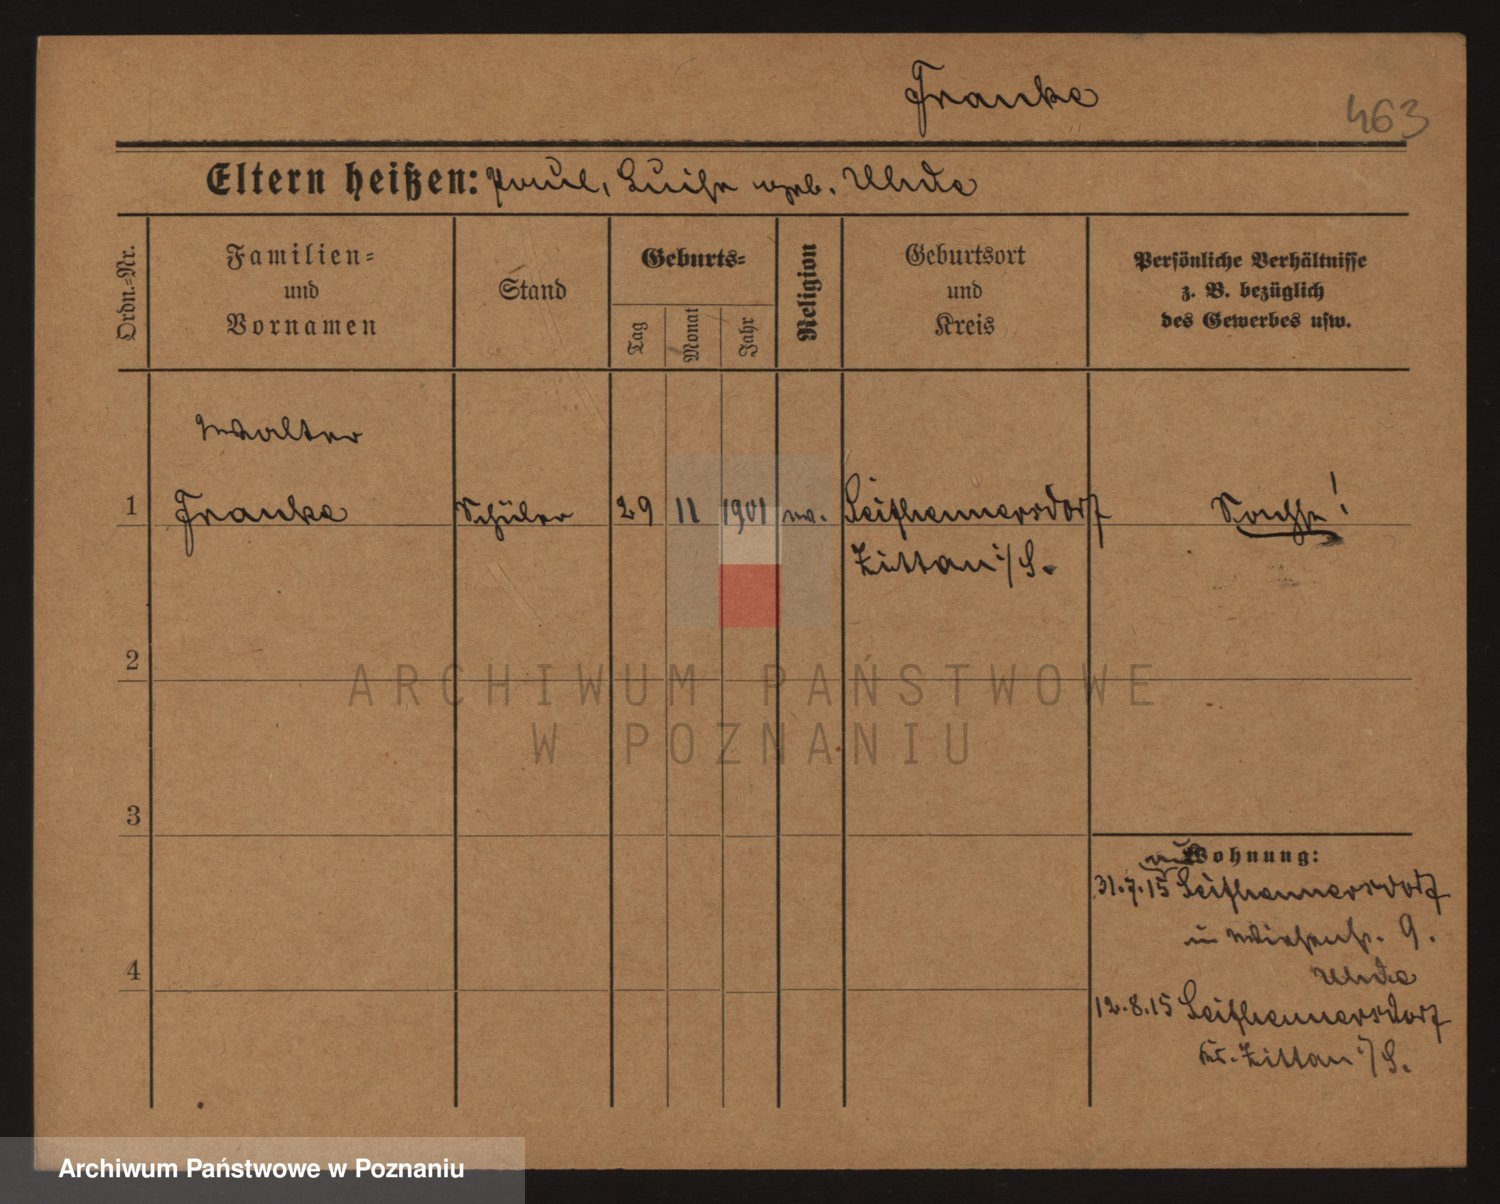 Franke
463
Eltern heißen: Paul, Luise geb. Uhde
Ordn.-Nr.
Familien-
und
Vornamen
Stand
Geburts-
Tag
Monat
Jahr
Religion
Geburtsort
und
Kreis
Persönliche Verhältnisse
z. B. bezüglich
des Gewerbes usw.
Walter
1 Franke Schüler 29 11 1901 ev. Seifhennersdorf Sachse!
Zittau i/S.
2
3
Wohnung:
aus
31.7.15 Seifhennersdorf
in Wiesenstr. 9.
Uhde
4
12.8.15 Seifhennersdorf
Kr. Zittau i/S.
ARCHIWUM PAŃSTWOWE
W POZNANIU
Archiwum Państwowe w Poznaniu